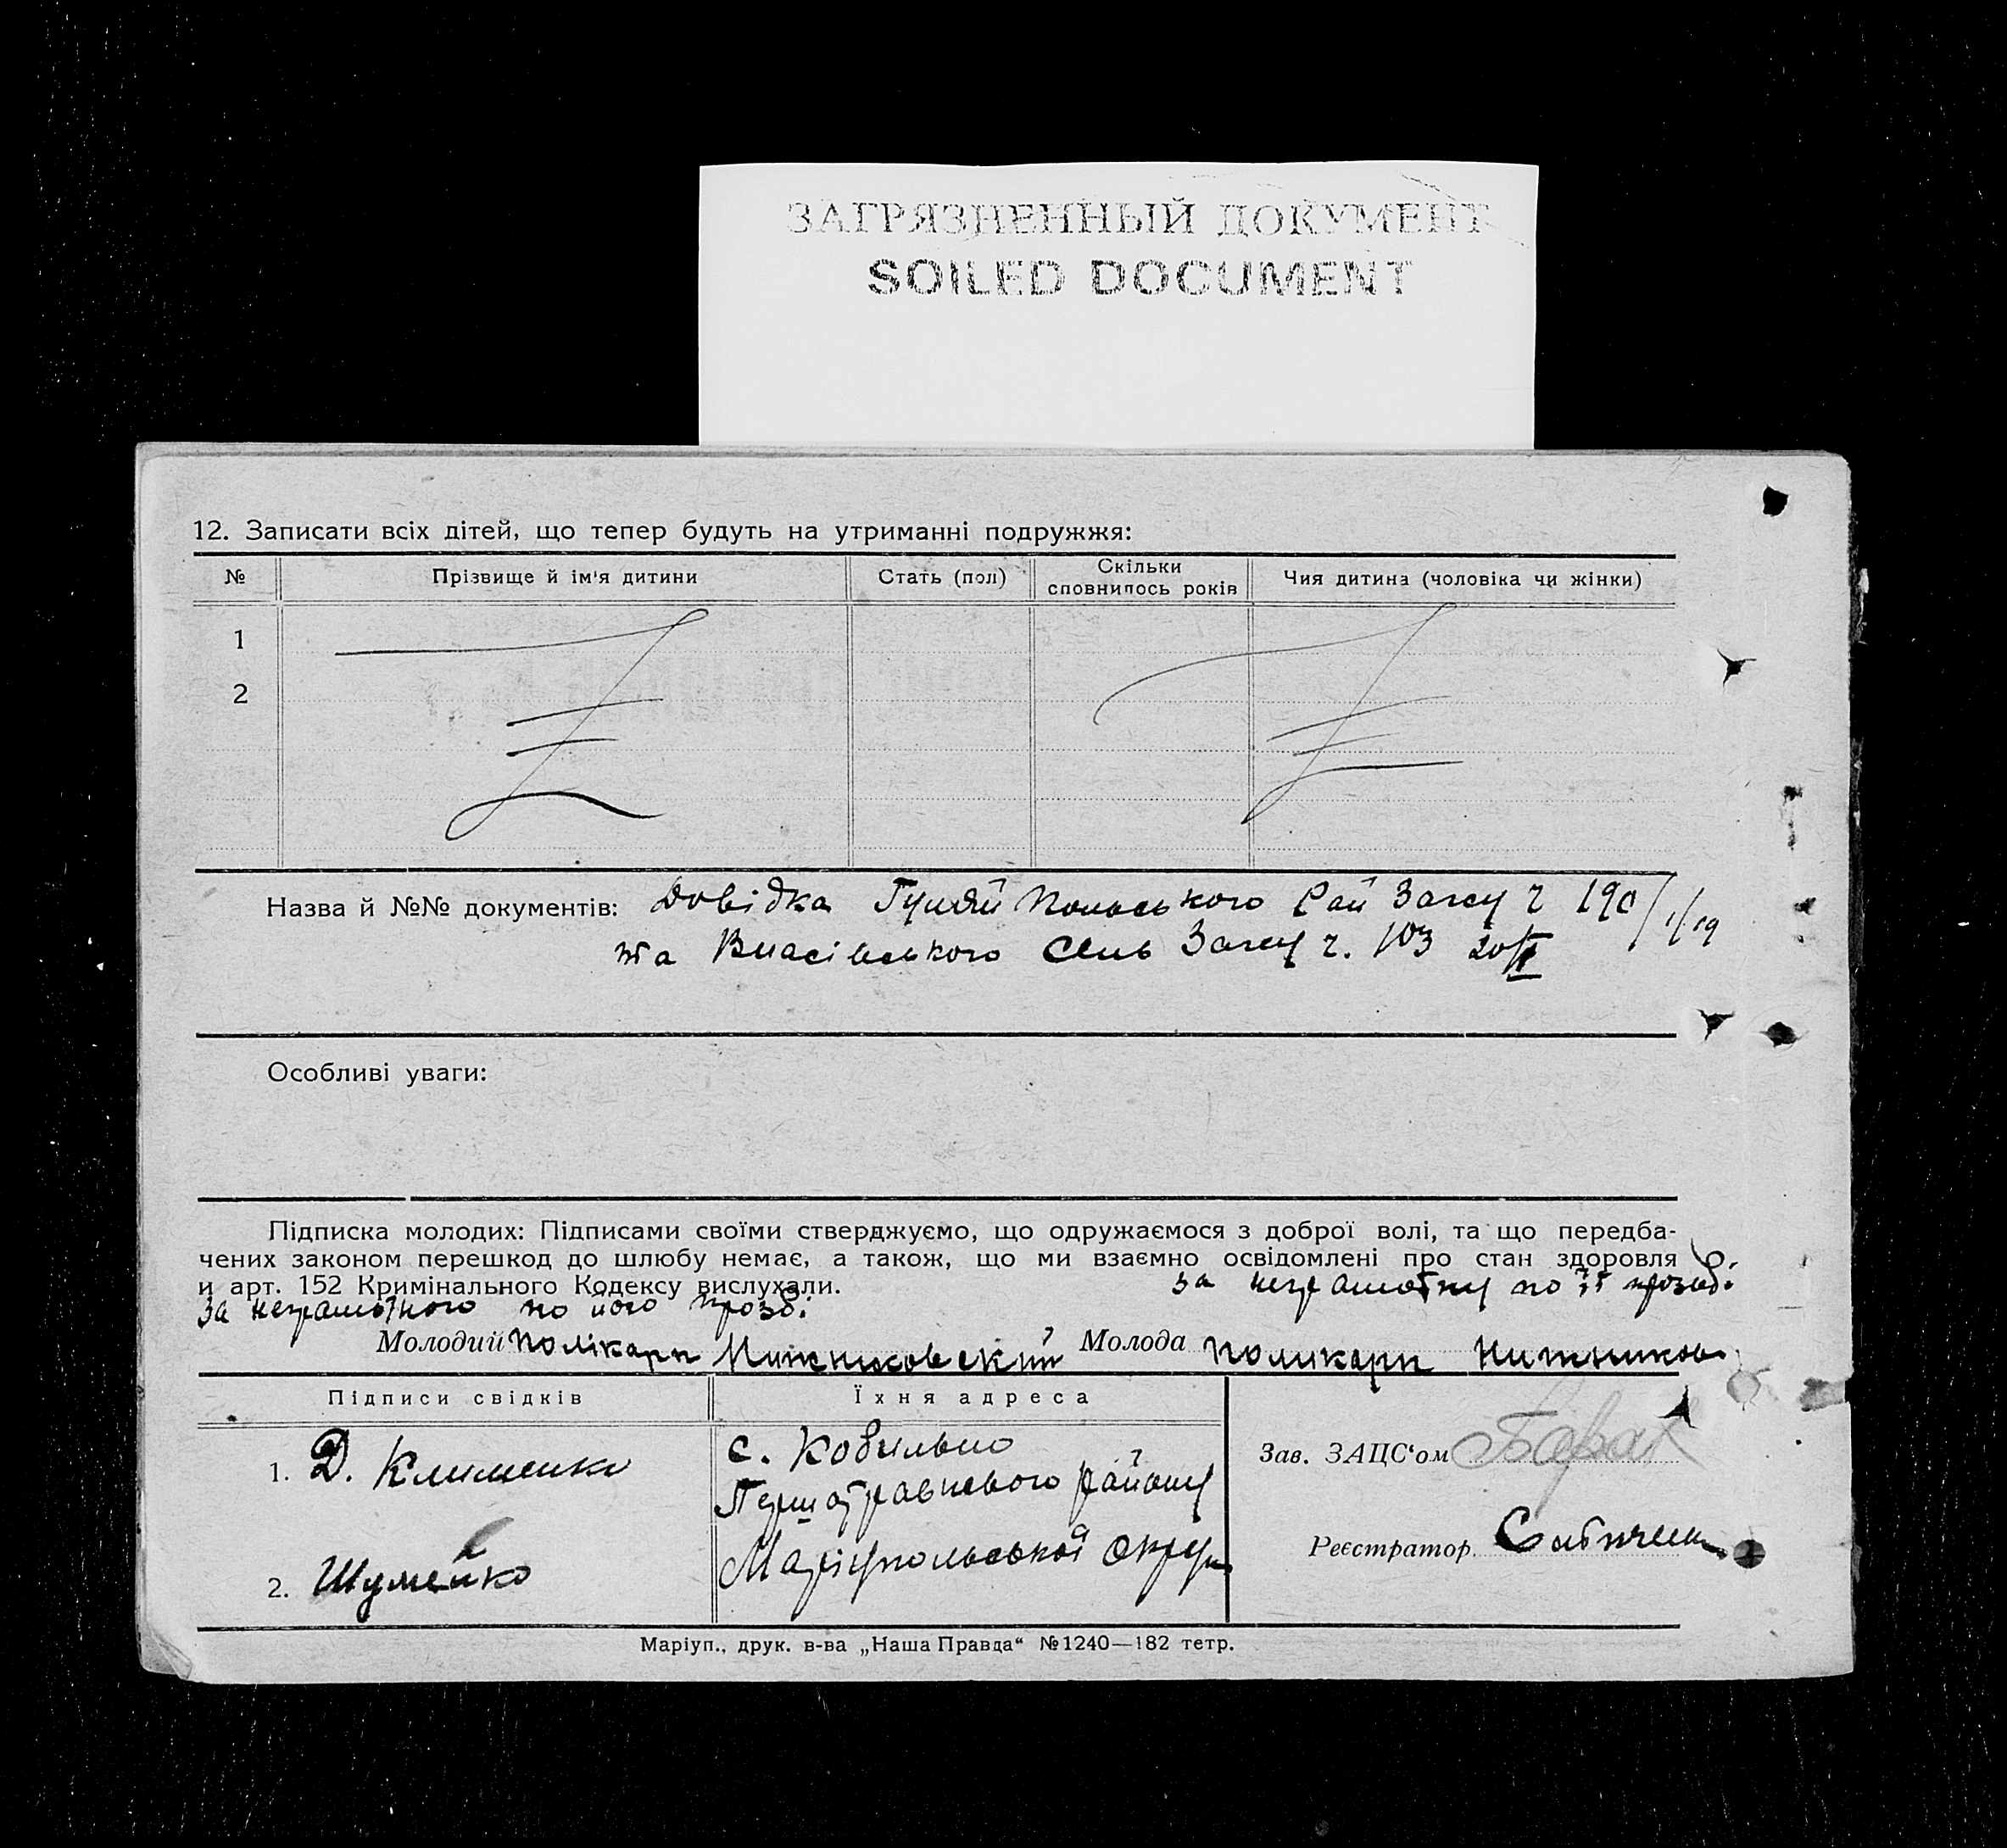 ЗАГРЯЗНЕННЫЙ ДОКУМЕНТ
SOILED DOCUMENT
12. Записати всіх дітей, що тепер будуть на утриманні подружжя:
№ Прізвище й ім'я дитини Стать (пол) Скільки сповнилось років Чия дитина (чоловіка чи жінки)
1
2
Назва й №№ документів: Довідка Гуляй Польського Рай Загсу ч 190
та Власівського Сель Загсу ч. 103
Особливі уваги:
Підписка молодих: Підписами своїми стверджуємо, що одружаємося з доброї волі, та що передба-
чених законом перешкод до шлюбу немає, а також, що ми взаємно освідомлені про стан здоровля
и арт. 152 Кримінального Кодексу вислухали. за неграмотну по її прозьб.
за неграмотного по його прозбі
Молодий Полікарп Молода Поликарп
Підписи свідків Їхня адреса
1. Д. Клименко с. Кобильно Зав. ЗАЦС‘ом
Першотравневого району
2. Шумейко Маріупольської Округи Реєстратор
Маріуп., друк. в-ва „Наша Правда“ №1240—182 тетр.